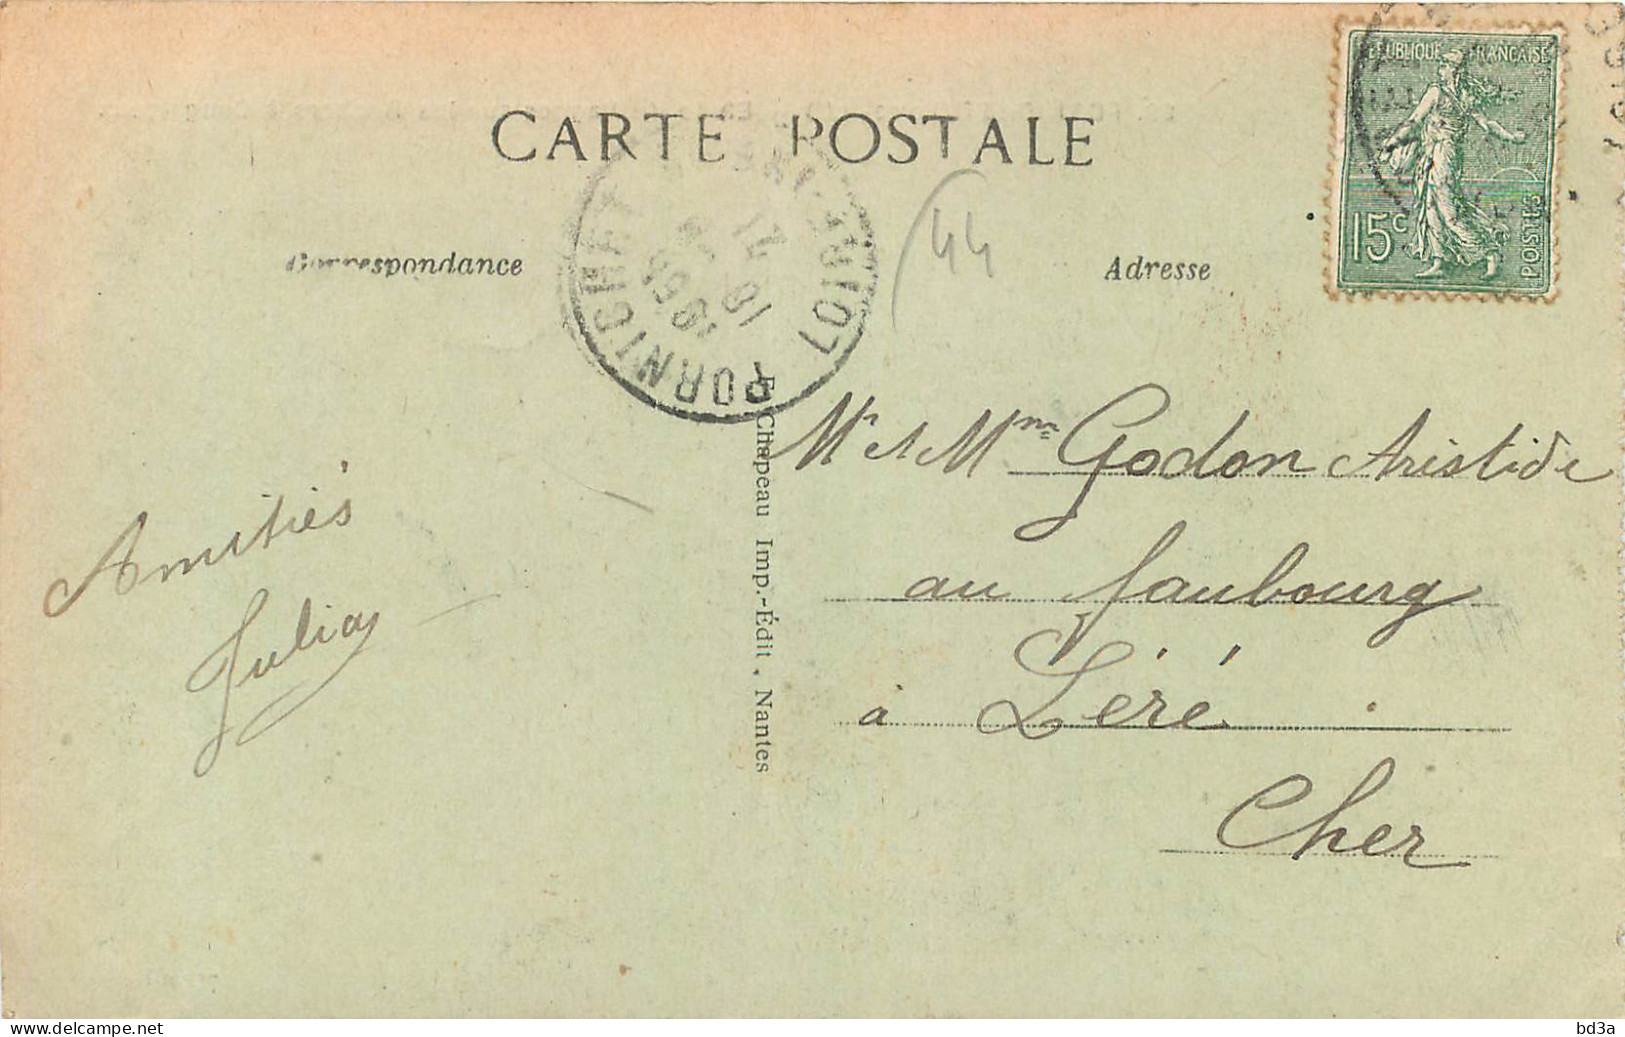 CARTE POSTALE
RÉPUBLIQUE FRANÇAISE
15c
POSTES
Correspondance
Adresse
44
PORNICHET
LOIRE
E. Chapeau Imp.-Édit, Nantes
Mr et Mme Godon Aristide
au faubourg
à Léré
Cher
Amitiés
Julia
bd3a
www.delcampe.net